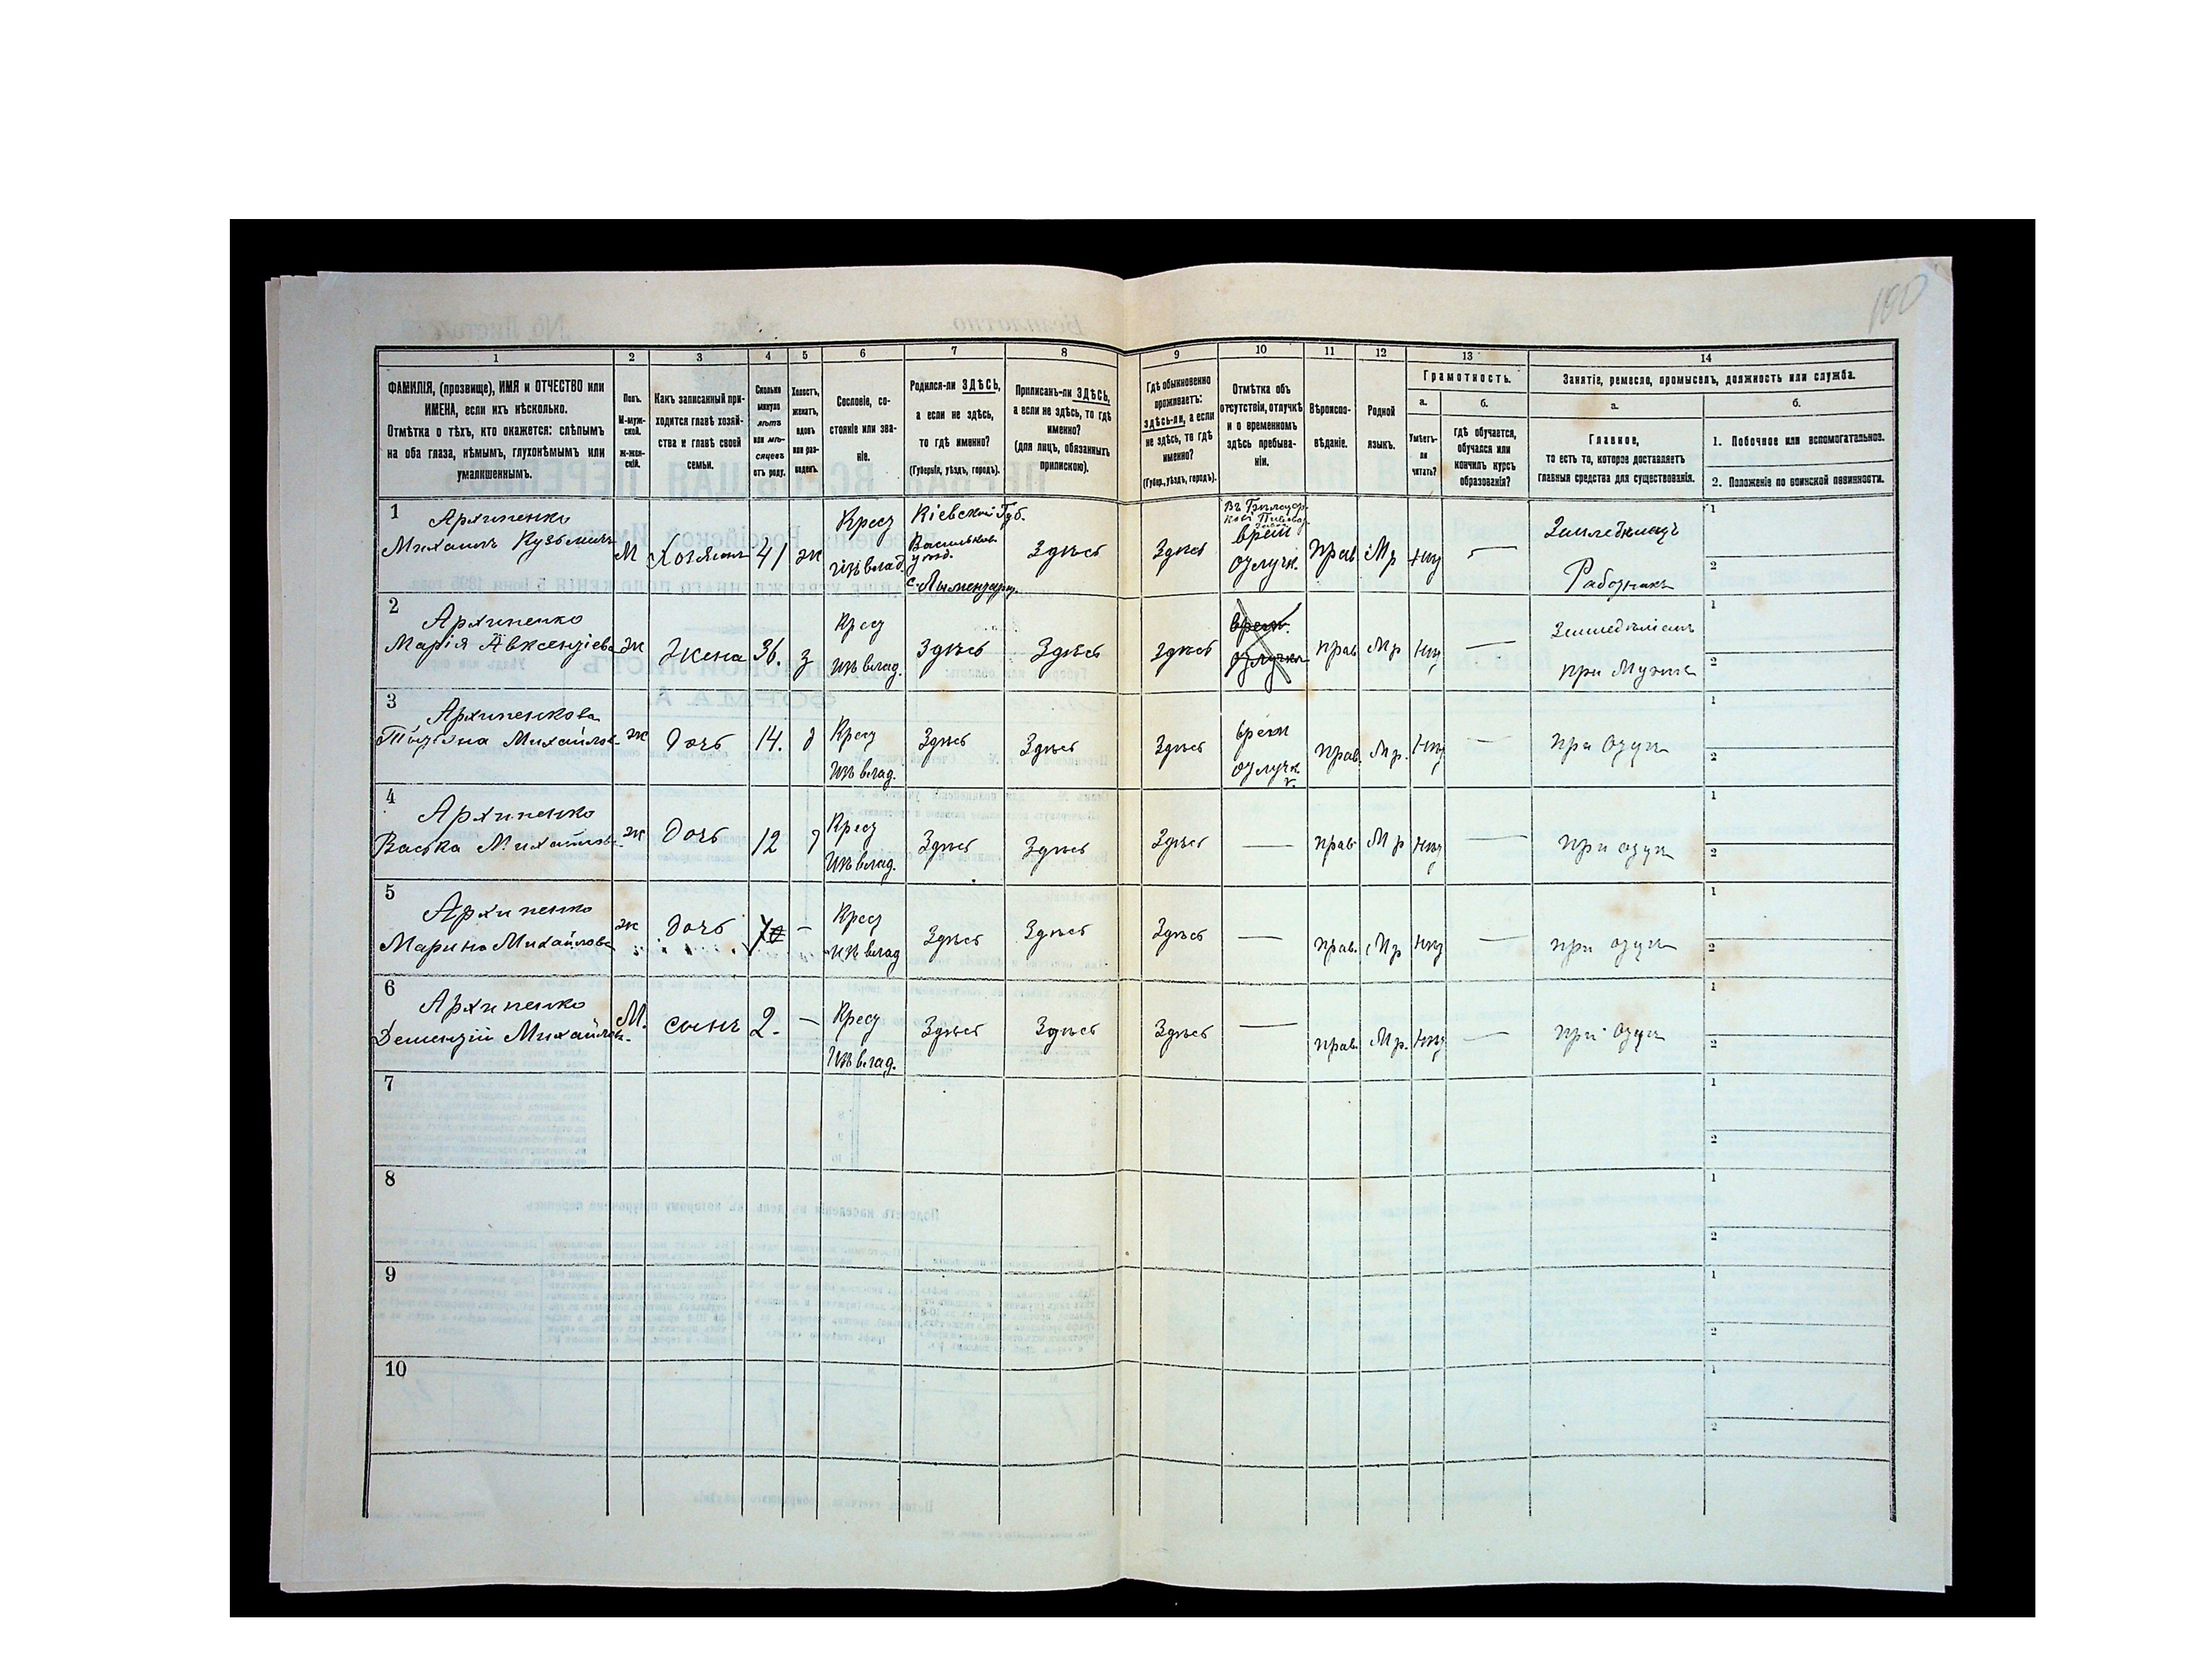 100
1 2 3 4 5 6 7 8 9 10 11 12 13 14
ФАМИЛІЯ, (прозвище), ИМЯ и ОТЧЕСТВО или
ИМЕНА, если ихъ нѣсколько.
Отмѣтка о тѣхъ, кто окажется: слѣпымъ
на оба глаза, нѣмымъ, глухонѣмымъ или
умалишеннымъ.
Полъ.
М-муж-
ской.
ж-жен-
скій.
Какъ записанный при-
ходится главѣ хозяй-
ства и главѣ своей
семьи.
Сколько
минуло
лѣтъ
или мѣ-
сяцевъ
отъ роду.
Холостъ,
женатъ,
вдовъ
или раз-
веденъ.
Сословіе, со-
стояніе или зва-
ніе.
Родился-ли ЗДѢСЬ,
а если не здѣсь,
то гдѣ именно?
(Губернія, уѣздъ, городъ).
Приписанъ-ли ЗДѢСЬ,
а если не здѣсь, то гдѣ
именно?
(для лицъ, обязанныхъ
припискою).
Гдѣ обыкновенно
проживаетъ:
здѣсь-ли, а если
не здѣсь, то гдѣ
именно?
(Губер., уѣздъ, городъ).
Отмѣтка объ
отсутствіи, отлучкѣ
и о временномъ
здѣсь пребыва-
ніи.
Вѣроиспо-
вѣданіе.
Родной
языкъ.
Грамотность.
а.
Умѣетъ-
ли
читать?
б.
Гдѣ обучается,
обучался или
кончилъ курсъ
образованія?
Занятіе, ремесло, промыселъ, должность или служба.
а.
Главное,
то есть то, которое доставляетъ
главныя средства для существованія.
б.
1. Побочное или вспомогательное.
2. Положеніе по воинской повинности.
1
Архипенко
Михаилъ Кузьминъ
М
Хозяинъ
41
ж
Крест
изъ влад.
Кіевской Губ.
Васильков
уѣзд.
Здѣсь
Здѣсь
врем
отлучк.
прав
Мр
нѣт
—
Земледѣлецъ
Работникъ
1
2
2
Архипенко
Марія Авксентіева
ж
Жена
36.
з
Крест
изъ влад.
Здѣсь
Здѣсь
Здѣсь
врем.
отлучк.
прав
Мр
нѣт
—
при Мужѣ
1
2
3
Архипенкова
Татіана Михайлов.
ж
дочь
14.
д
Крест
изъ влад.
Здѣсь
Здѣсь
Здѣсь
врем
отлучк.
прав.
Мр.
нѣт
—
при отцѣ
1
2
4
Архипенко
Васька Михайлова
ж
дочь
12
Крест
изъ влад.
Здѣсь
Здѣсь
Здѣсь
—
прав
Мр
нѣт
—
при отцѣ
1
2
5
Архипенко
Марина Михайлова
ж
дочь
—
Крест
изъ влад
Здѣсь
Здѣсь
Здѣсь
—
прав.
Мр
нѣт
—
при отцѣ
1
2
6
Архипенко
Дементій Михайлов.
М.
сынъ
2.
—
Крест
изъ влад.
Здѣсь
Здѣсь
Здѣсь
—
прав.
Мр.
нѣт
—
при отцѣ
1
2
7
1
2
8
1
2
9
1
2
10
1
2